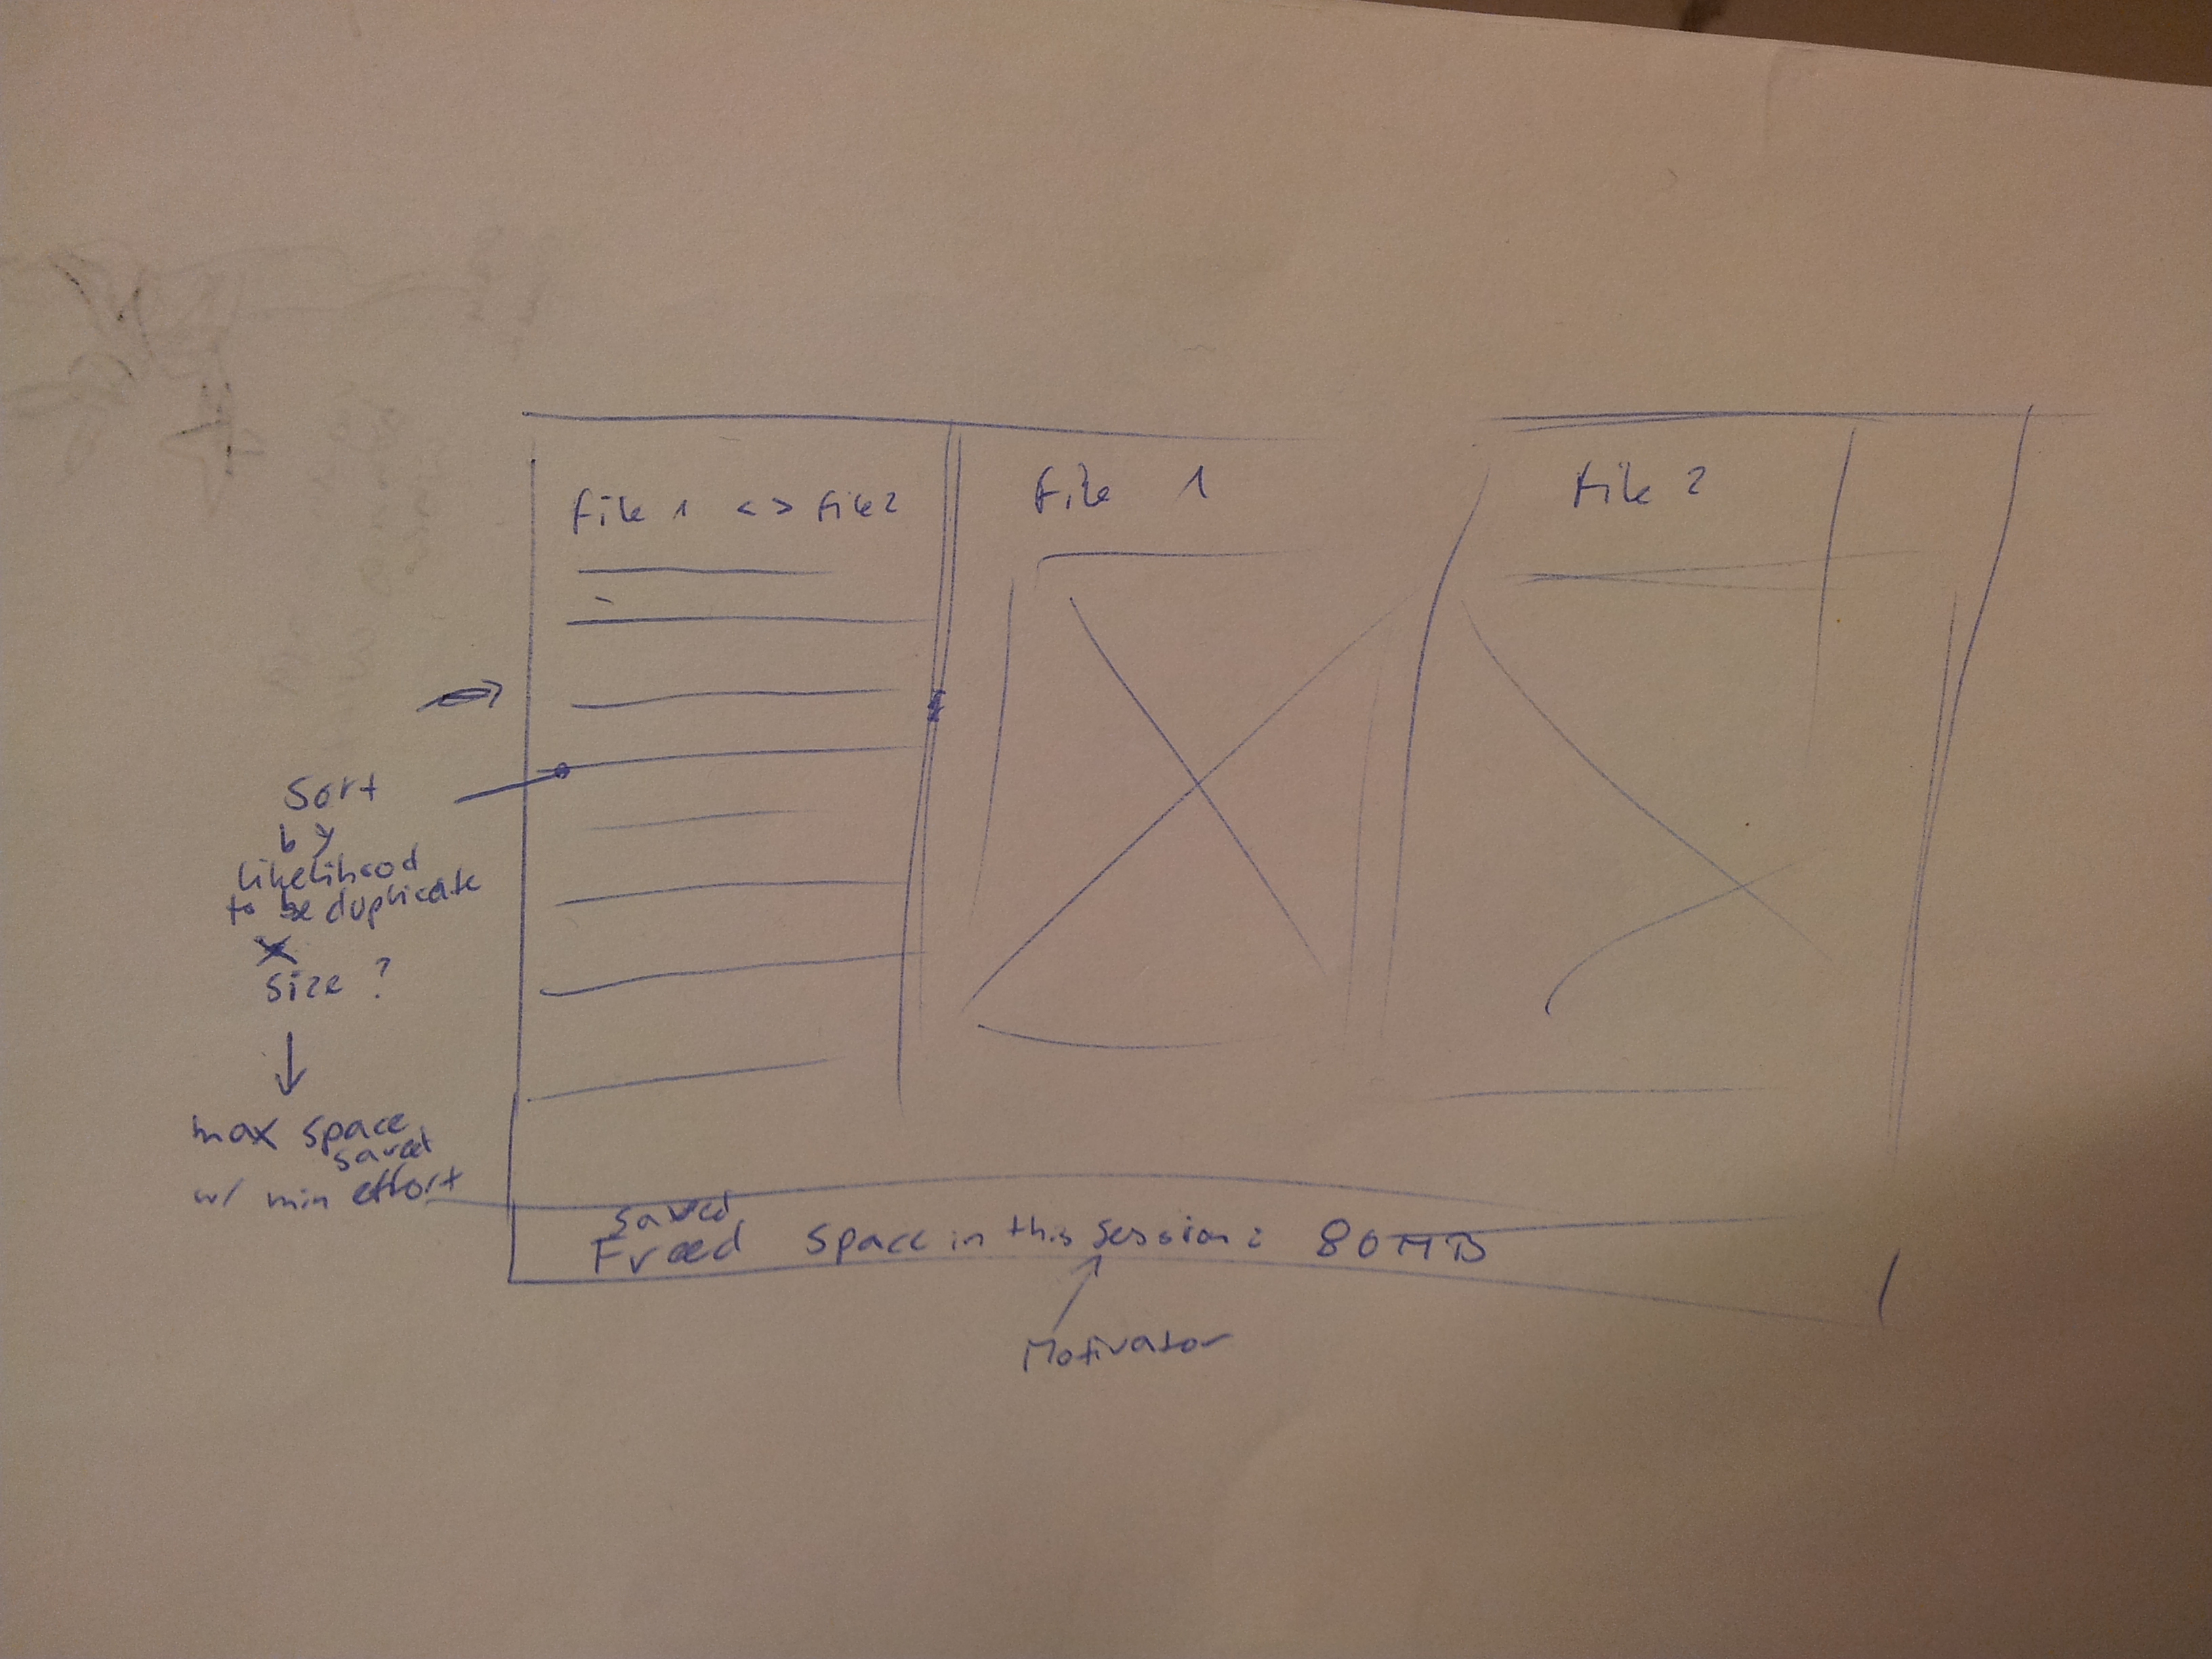 File 1 <> File 2
File 1
File 2
Sort
by
likelihood
to be duplicate
x
size ?
max space
saved
w/ min effort
saved
Freed space in this session: 80 MB
Motivator